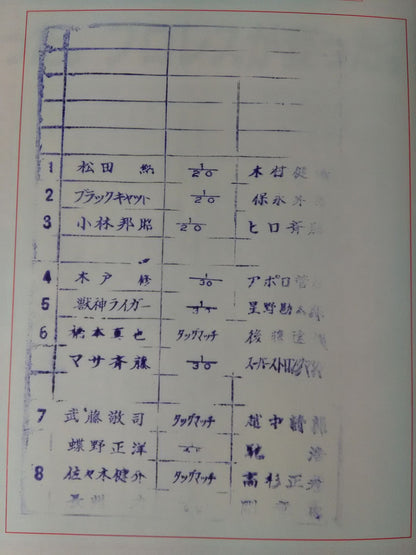 1 松田 納 1/20 木村健
2 ブラックキャット 1/20 保永
3 小林邦昭 1/20 ヒロ斉
4 木戸 修 1/30 アポロ菅
5 獣神ライガー 星野勘
6 橋本真也 タッグマッチ 後藤達
マサ斉藤 1/30 スーパーストロング
7 武藤敬司 タッグマッチ 越中詩郎
蝶野正洋 馳 浩
8 佐々木健介 タッグマッチ 高杉正
長州